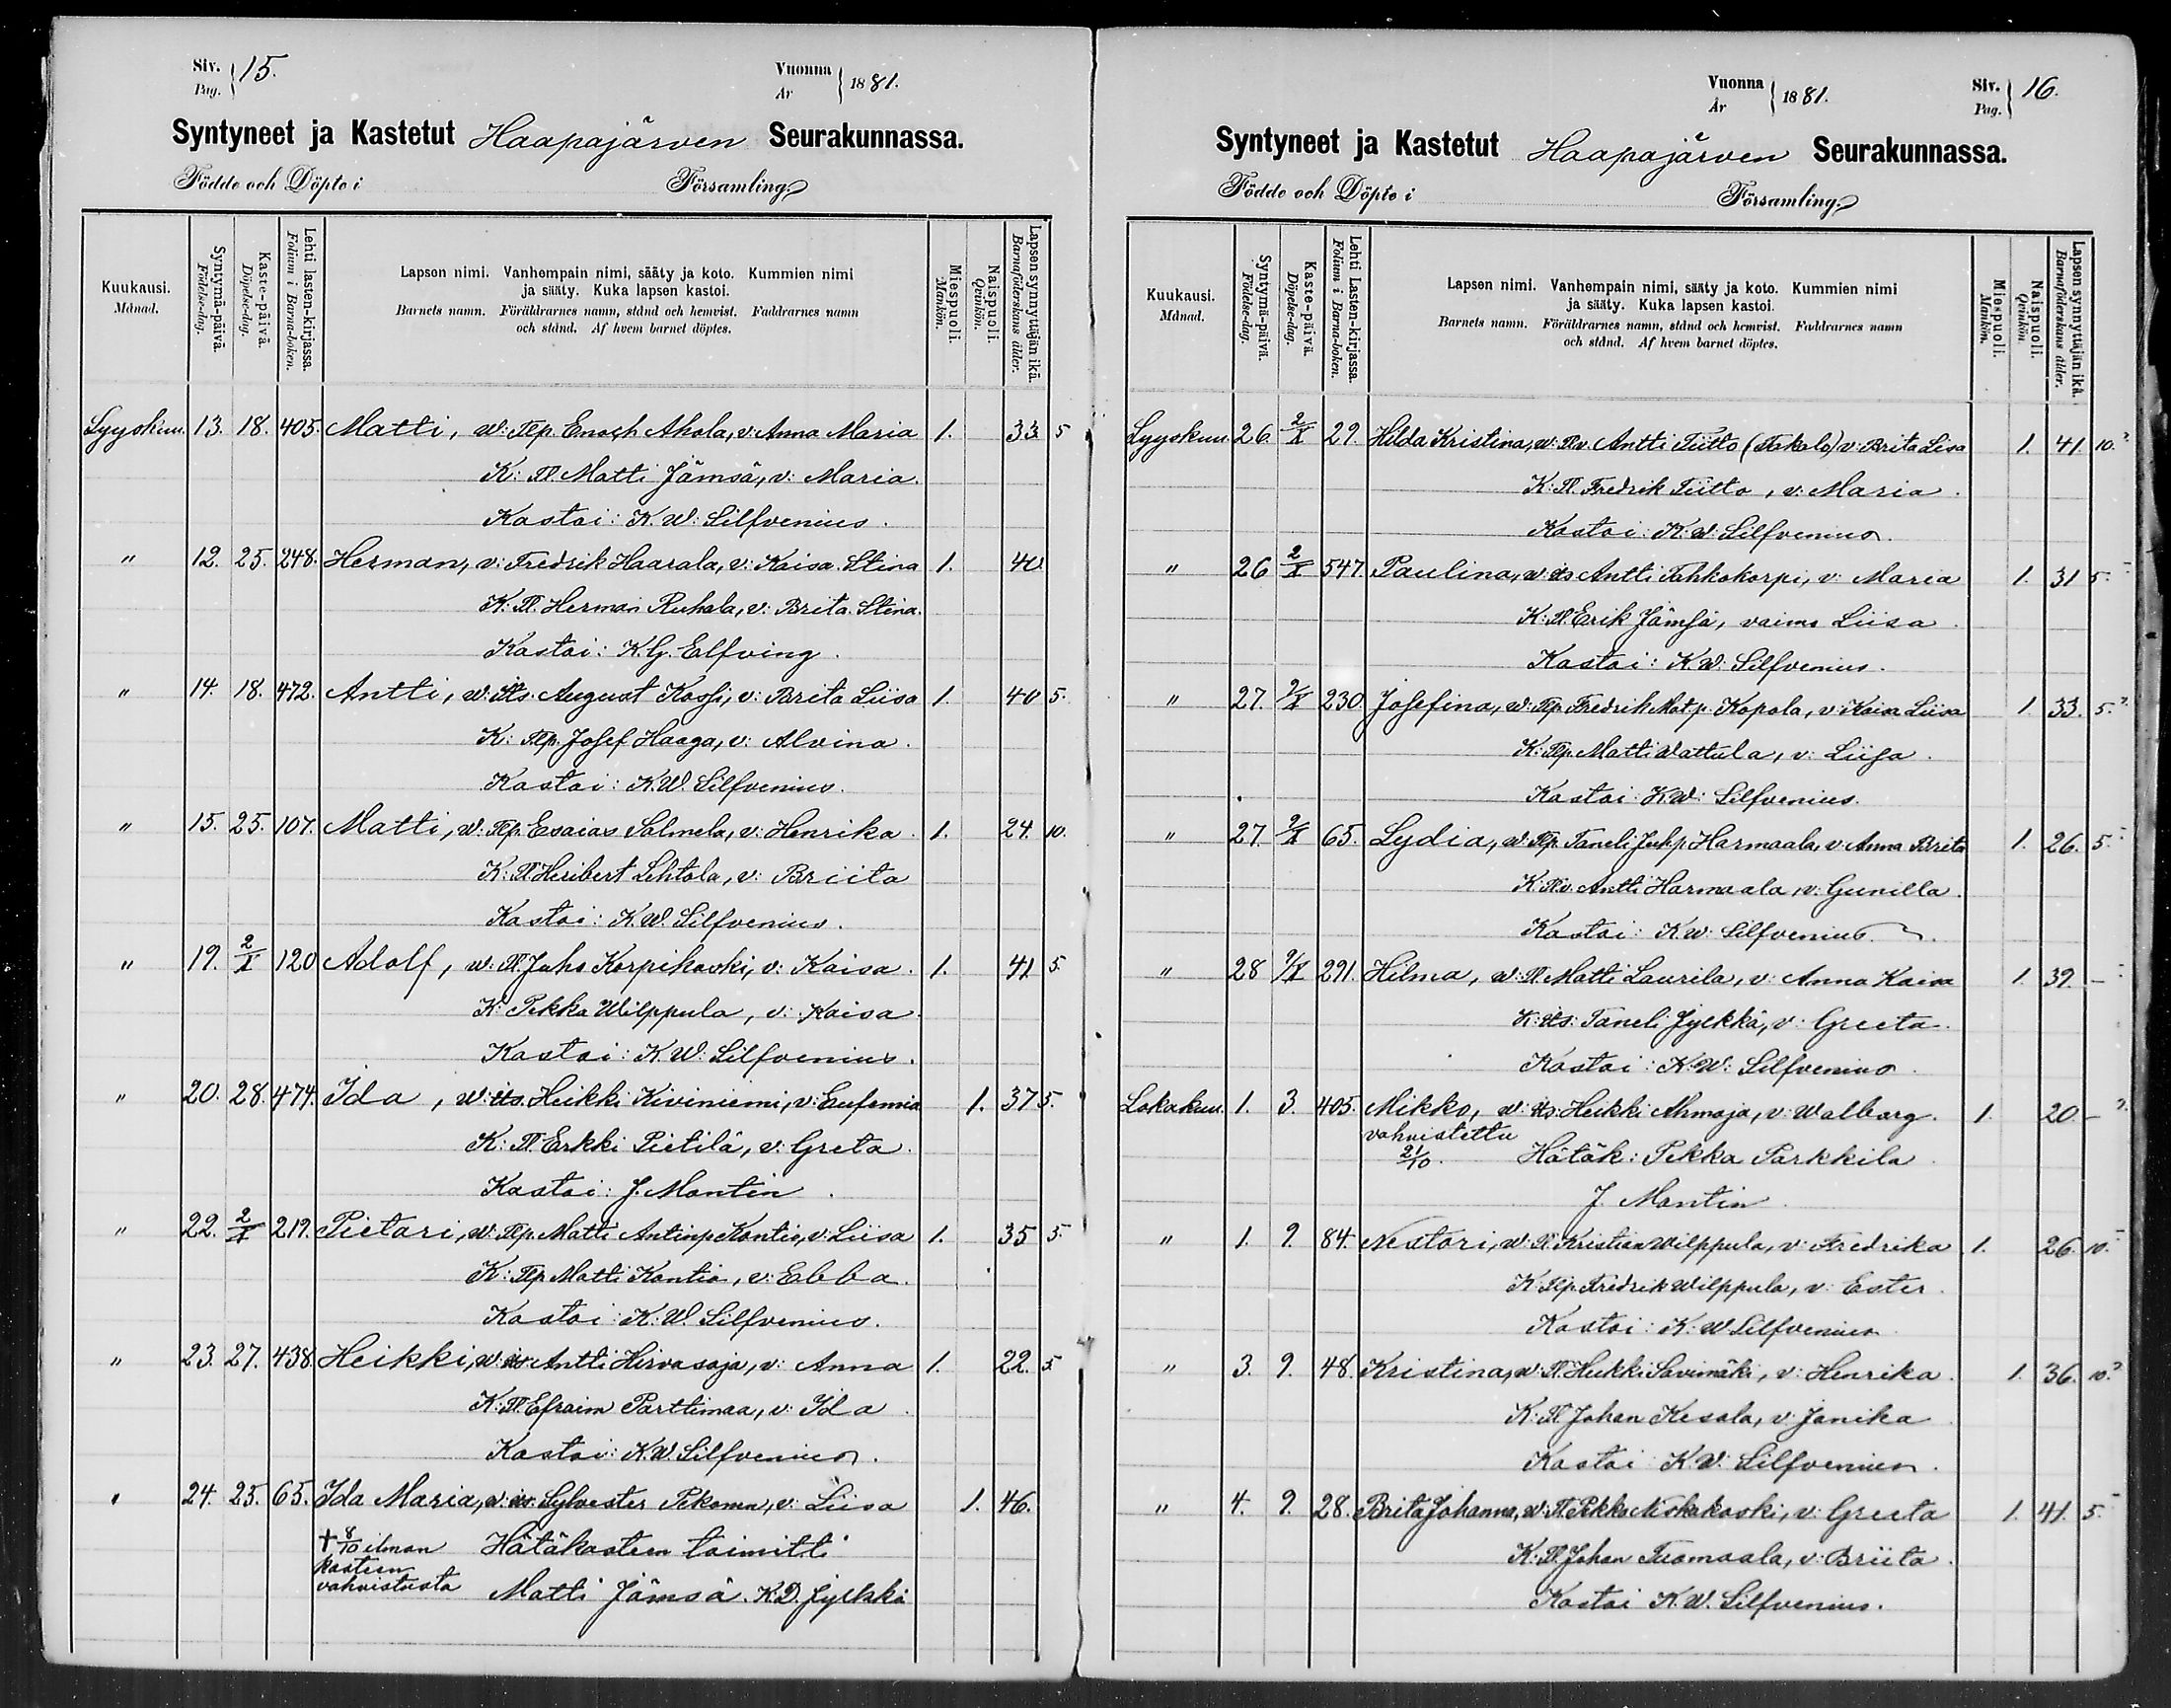 Siv. Pag. 15. Vuonna År 1881.
Syntyneet ja Kastetut Haapajärven Seurakunnassa.
Födde och Döpte i Församling.
Kuukausi. Månad. Syntymä-päivä. Födelse-dag. Kaste-päivä. Döpelse-dag. Lehti lasten-kirjassa. Folium i Barna-boken. Lapsen nimi. Vanhempain nimi, sääty ja koto. Kummien nimi ja sääty. Kuka lapsen kastoi. Barnets namn. Föräldrarnes namn, stånd och hemvist. Faddrarnes namn och stånd. Af hvem barnet döptes. Miespuoli. Mankön. Naispuoli. Qvinkön. Lapsen synnyttäjän ikä. Barnaföderskans ålder.
Syyskuu. 13. 18. 405. Matti, w: Tlp. Enoch Ahola, v: Anna Maria 1. 33 5
K: Tl. Matti Jämsä, v: Maria.
Kastoi: K. W. Silfvenius.
" 12. 25. 248. Herman, v: Fredrik Haarala, v: Kaisa Stina 1. 40
K: Tl. Herman Ruhala, v: Brita Stina.
Kastoi: K. G. Elfving.
" 14. 18. 472. Antti, w: its. August Kossi, v: Brita Liisa 1. 40 5.
K: Tlp. Josef Haaga, v: Alvina.
Kastoi: K. W. Silfvenius.
" 15. 25. 107. Matti, w: Tlp. Esaias Salmela, v: Henrika. 1. 24. 10.
K: Tl Heribert Lehtola, v: Briita
Kastoi: K. W. Silfvenius.
" 19. 2/X 120 Adolf, w: Tl. Juho Korpikoski, v: Kaisa. 1. 41 5.
K: Pekka Wilppula, v: Kaisa.
Kastoi: K. W. Silfvenius.
" 20. 28. 474. Ida, w: its. Heikki Kiviniemi, v: Eufemia 1. 37 5.
K: Tl Erkki Pietilä, v: Greta.
Kastoi: J. Montin.
" 22. 2/X 219. Pietari, w: Tlp. Matti Antinp Kontio, v: Liisa 1. 35 5.
K: Tlp Matti Kontio, v: Ebba.
Kastoi: K. W. Silfvenius.
" 23. 27. 438. Heikki, w: its Antti Hirvasoja, v: Anna 1. 22. 5
K: Tl. Efraim Parttimaa, v: Ida.
Kastoi: K. W. Silfvenius.
" 24. 25. 65. Ida Maria, w: its. Sylvester Pekoma, v: Liisa 1. 46.
† 8/10 ilman Hätäkasteen toimitti
kasteen
vahvistusta Matti Jämsä. K. D. Jylkkä
Vuonna År 1881. Siv. Pag. 16.
Syntyneet ja Kastetut Haapajärven Seurakunnassa.
Födde och Döpte i Församling.
Kuukausi. Månad. Syntymä-päivä. Födelse-dag. Kaste-päivä. Döpelse-dag. Lehti Lasten-kirjassa. Folium i Barna-boken. Lapsen nimi. Vanhempain nimi, sääty ja koto. Kummien nimi ja sääty. Kuka lapsen kastoi. Barnets namn. Föräldrarnes namn, stånd och hemvist. Faddrarnes namn och stånd. Af hvem barnet döptes. Miespuoli. Mankön. Naispuoli. Qvinkön. Lapsen synnyttäjän ikä. Barnaföderskans ålder.
Syyskuu 26. 2/X 29 Hilda Kristina, w: Tlv. Antti Tiitto (Takalo) v: Brita Liisa 1. 41. 10.
K: Tl. Fredrik Tiitto, v: Maria.
Kastoi: K. W. Silfvenius.
" 26 2/X 547. Paulina, w: its Antti Tahkokorpi, v: Maria 1. 31 5.
K: Tl Erik Jämsä, vaimo Liisa.
Kastoi: K. W. Silfvenius.
" 27. 2/X 230 Josefina, w: Tlp. Fredrik Mat.p. Kopola, v: Kaisa Liisa 1. 33. 5.
K: Tlp. Matti Wattula, v: Liisa.
Kastoi: K. W. Silfvenius.
" 27. 2/X 65. Lydia, w: Tlp Taneli Juhp Harmaala, v: Anna Brita 1. 26. 5.
K: Tlv. Antti Harmaala, v: Gunilla.
Kastoi: K. W. Silfvenius.
" 28 9/X 291. Hilma, w: Tl. Matti Laurila, v: Anna Kaisa 1. 39. –
K: its: Taneli Jylkkä, v: Greeta.
Kastoi: K. W. Silfvenius.
Lokakuu. 1. 3. 405. Mikko, w: its Heikki Ahmaja, v: Walborg. 1. 20. –
vahvistettu
21/10. Hätäk: Pekka Parkkila.
J. Montin
" 1. 9. 84. Nestori, w: Tl Kristian Wilppula, v: Fredrika 1. 26. 10.
K: Tlp Fredrik Wilppula, v: Ester.
Kastoi: K. W Silfvenius
" 3. 9. 48. Kristina, w: Tl. Heikki Savimäki, v: Henrika. 1. 36. 10.
K: Tl Johan Kesola, v: Janika
Kastoi K. W. Silfvenius.
" 4. 9. 28. Brita Johanna, w: Tl. Pekka Niskakoski, v: Greeta 1. 41. 5.
K: Tl. Johan Tuomaala, v: Briita.
Kastoi K. W. Silfvenius.